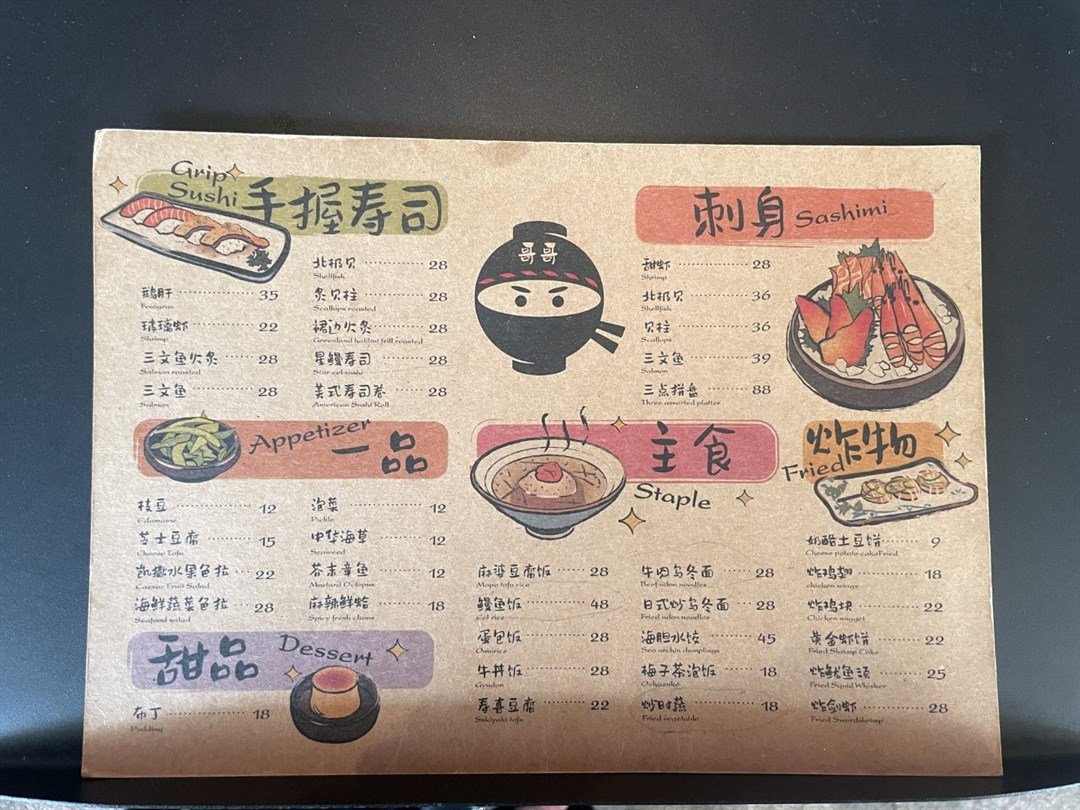 Grip
Sushi 手握寿司
北极贝 28
Shellfish
鹅肝 35
Foiegras
炙贝柱 28
Scallops roasted
琥璃虾 22
Shrimp
裙边火炙 28
Greenland halibut frill roasted
三文鱼火炙 28
Salmon roasted
星鳗寿司 28
Star eel sushi
三文鱼 28
Salmon
美式寿司卷 28
American Sushi Roll
哥哥
刺身 Sashimi
甜虾 28
Shrimp
北极贝 36
Shellfish
贝柱 36
Scallops
三文鱼 39
Salmon
三点拼盘 88
Three assorted platter
Appetizer 一品
枝豆 12
Edamame
泡菜 12
Pickle
芝士豆腐 15
Cheese Tofu
中华海草 12
Seaweed
凯撒水果色拉 22
Caesar Fruit Salad
芥末章鱼 12
Mustard Octopus
海鲜蔬菜色拉 28
Seafood salad
麻辣鲜蛤 18
Spicy fresh clams
甜品 Dessert
布丁 18
Pudding
主食
Staple
麻婆豆腐饭 28
Mapo tofu rice
牛肉乌冬面 28
Beef udon noodles
鳗鱼饭 48
Eel rice
日式炒乌冬面 28
Fried udon noodles
蛋包饭 28
Omurice
海胆水饺 45
Sea urchin dumplings
牛丼饭 28
Gyudon
梅子茶泡饭 18
Ochazuke
寿喜豆腐 22
Sukiyaki tofu
炒时蔬 18
Fried vegetable
炸物
Fried
奶酪土豆饼 9
Cheese potato cakeFried
炸鸡翅 18
chicken wings
炸鸡块 22
Chicken nugget
黄金虾饼 22
Fried Shrimp Cake
炸鱿鱼须 25
Fried Squid Whisker
炸剑虾 28
Fried Swordshrimp